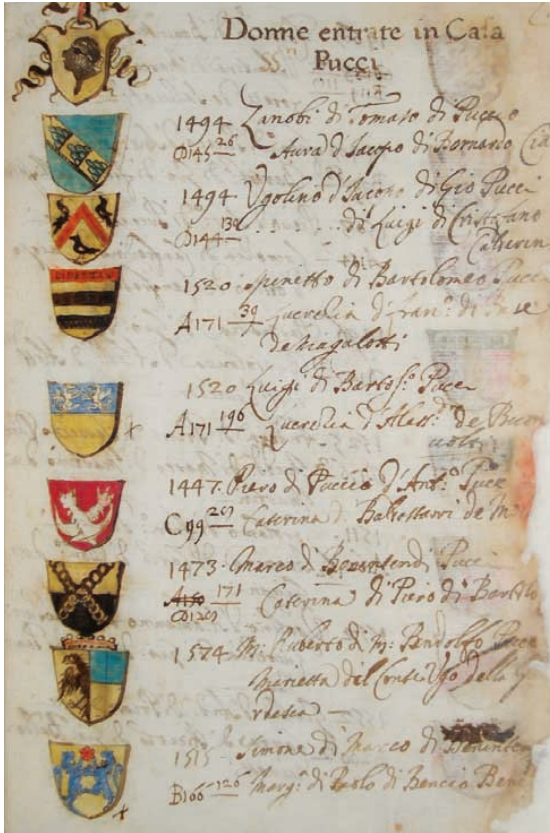 Donne entrate in Casa
Pucci
1494 Zanobi di Tomaso di Puccio
D145 26 Aura d'Iacopo di Bernardo
1494 Ugolino d'Iacopo di Gio Pucci
D144 di Luigi di Cristofano
Caterin
1520 Spinetto di Bartolomeo Pucci
A171 39 Querelia d'Fran.o di
de Magalotti
1520 Luigi di Barto Pucci
A171 196 Querelia d'Aless.o de Buon
1447 Piero di Puccio d'Ant.o Pucc
C99 269 Caterina di de M
1473 Marco di Benintendi Pucci
171 Caterina di Piero di Bartolo
1574 M: Ruberto di m: Pandolfo Pucci
Marietta del Conte Ugo della G
rdesca
1515 Simone di Marco di Beninten
B166 126 Marg.a di Paolo di Bencio Benc